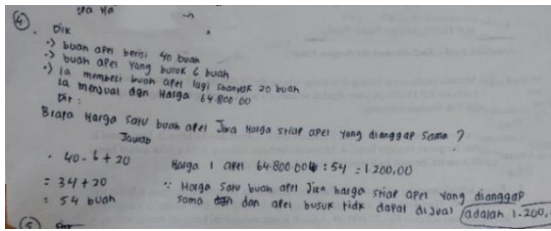 ④ Dik
-> buah apel berisi 40 buah
-> buah apel yang busuk 6 buah
-> Ia membeli buah apel lagi sbanyak 20 buah
Ia menjual dgn Harga 64.800.00
Dit :
Brapa Harga satu buah apel Jika Harga stiap apel yang dianggap sama ?
Jawab
• 40 - 6 + 20
= 34 + 20
= 54 buah
Harga 1 apel 64.800.00 : 54 = 1.200,00
∵ Harga satu buah apel Jika harga stiap apel yang dianggap
sama dan apel busuk tidk dapat dijual adalah 1.200,
⑤